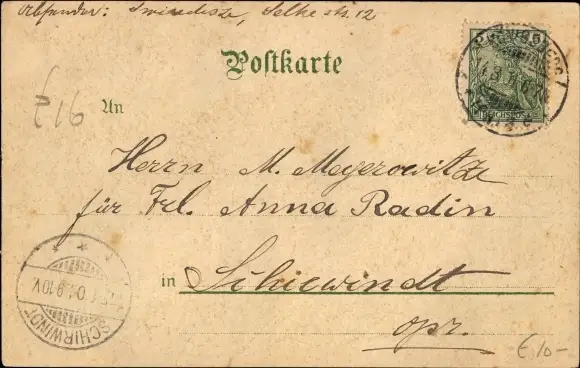 Absender: Swindisze, Selke str. 12
Postkarte
£16
An
Herrn M. Meyerowitz
für Frl. Anna Radin
in Schirwindt
opr.
REICHSPOST
SCHIRWINDT
9-10V.
£10-